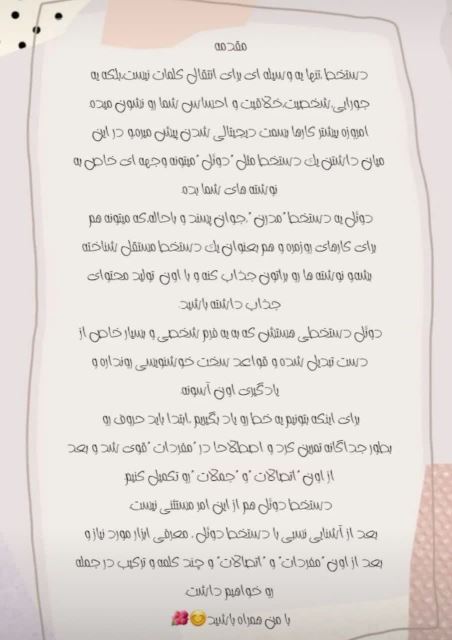 مقدمه
دستخط،تنها یه وسیله ای برای انتقال کلمات نیست،بلکه یه
جورایی،شخصیت،خلاقیت و احساس شما رو نشون میده
امروزه بیشتر کارها بسمت دیجیتالی شدن پیش میره،و در این
میان داشتن یك دستخط مثل "دوئل "میتونه وجهه ای خاص به
نوشته های شما بده
دوئل یه دستخط "مدرن "،جوان پسند و باحاله،که میتونه هم
برای کارهای روزمره و هم بعنوان یك دستخط مستقل شناخته
بشه،و نوشته ها رو براتون جذاب کنه و با اون تولید محتوای
جذاب داشته باشید.
دوئل دستخطی هستش که به یه فرم شخصی و بسیار خاص از
دست تبدیل شده و قواعد سخت خوشنویسی رونداره و
یادگیری اون آسونه.
برای اینکه بتونیم یه خط رو یاد بگیریم ،ابتدا باید حروف رو
بطور جداگانه تمرین کرد و اصطلاحا در "مفردات "قوی شد و بعد
از اون "اتصالات" و "جملات "رو تکمیل کنیم
دستخط دوئل هم از این امر مستثنی نیست
بعد از آشنایی نسبی با دستخط دوئل ، معرفی ابزار مورد نیاز و
بعد از اون "مفردات" و "اتصالات" و چند کلمه و ترکیب در جمله
رو خواهیم داشت
با من همراه باشید😊🌺